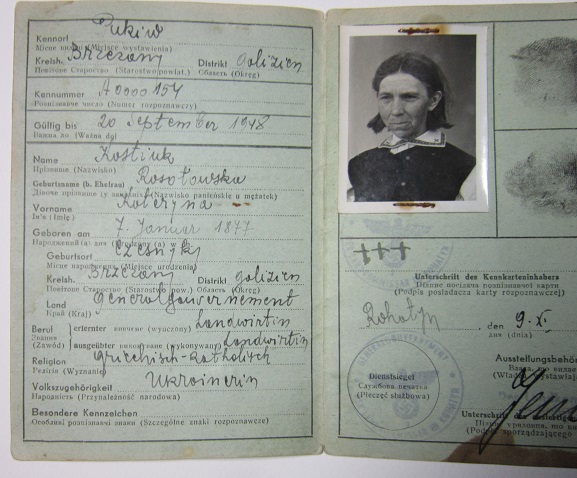 Kennort Pukiw
Місце видачі (Miejsce wystawienia)
Kreish. Brzezany Distrikt Galizien
Повітове Староство (Starostwo powiat.) Область (Okręg)
Kennummer A 0000154
Розпізнавче число (Numer rozpoznawczy)
Gültig bis 20 September 1948
Важна до (Ważna do)
Name Kostiuk
Прізвище (Nazwisko)
Geburtsname (b. Ehefrau) Rosołowska
Дівоче прізвище (Nazwisko panieńskie u mężatek)
Vorname Kateryna
Ім'я (Imię)
Geboren am 7. Januar 1877
Geburtsort Czesnyky
Місце народження (Miejsce urodzenia)
Kreish. Brzezany Distrikt Galizien
Повітове Староство (Starostwo powiat.) Область (Okręg)
Land Generalgouvernement
Край (Kraj)
Beruf erlernter (wyuczony) Landwirtin
Звання
(Zawód) ausgeübter (wykonywany) Landwirtin
Religion Griechisch-Katholisch
Релігія (Wyznanie)
Volkszugehörigkeit Ukrainerin
Народність (Przynależność narodowa)
Besondere Kennzeichen
Особливі розпізнавчі знаки (Szczególne znaki rozpoznawcze)
+++
Unterschrift des Kennkarteninhabers
Підпис посідача розпізнавчої карти
(Podpis posiadacza karty rozpoznawczej)
Rohatyn, den 9. XI.
дня (dnia)
Ausstellungsbehör
Влада, що вида
(Władza wystawiaj
Dienstsiegel
Службова печатка
(Pieczęć służbowa)
Unterschrift des
(Podpis sporządzającego